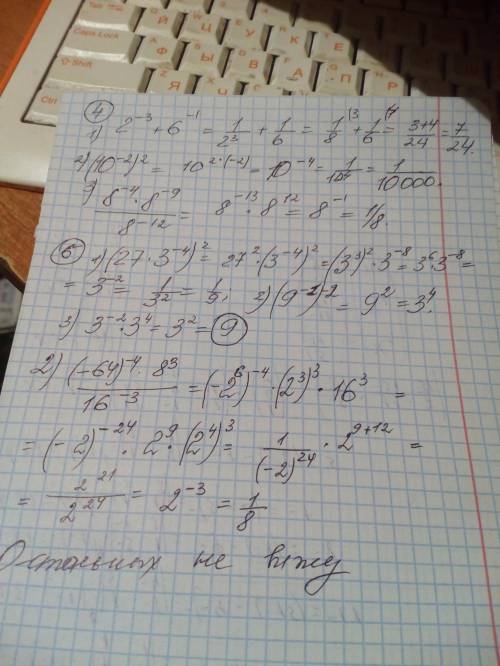 Tab
Caps Lock
Shift
Ctrl
Й Ц У К Е
Ф Ы В А П
Я Ч С
④
1) 2^{-3} + 6^{-1} = \frac{1}{2^3} + \frac{1}{6} = \frac{1}{8}^{(3} + \frac{1}{6}^{(4} = \frac{3+4}{24} = \frac{7}{24}.
2) (10^{-2})^2 = 10^{2·(-2)} = 10^{-4} = \frac{1}{10^4} = \frac{1}{10000}.
3) \frac{8^{-4} · 8^{-9}}{8^{-12}} = 8^{-13} · 8^{12} = 8^{-1} = 1/8.
⑥ 1) (27 · 3^{-4})^2 = 27^2 · (3^{-4})^2 = (3^3)^2 · 3^{-8} = 3^6 · 3^{-8} =
= 3^{-2} = \frac{1}{3^2} = \frac{1}{9}; 2) (9^{-1})^{-2} = 9^2 = 3^4.
3) 3^{-2} · 3^4 = 3^2 = ⑨
2) \frac{(-64)^{-4} · 8^3}{16^{-3}} = (-2^6)^{-4} · (2^3)^3 · 16^3 =
= (-2)^{-24} · 2^9 · (2^4)^3 = \frac{1}{(-2)^{24}} · 2^{9+12} =
= \frac{2^{21}}{2^{24}} = 2^{-3} = \frac{1}{8}
Остальных не вижу